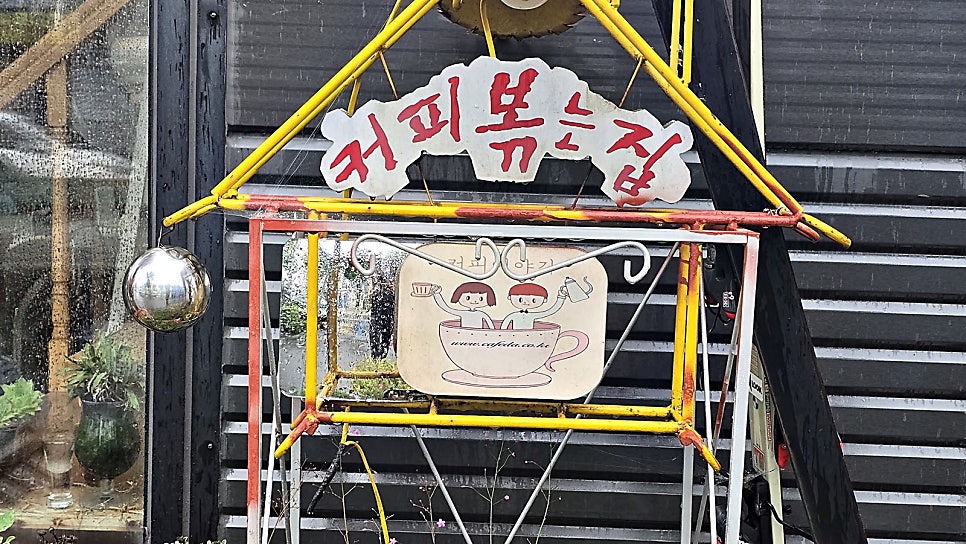 커피볶는집
커피 야기
www.cafeda.co.kr